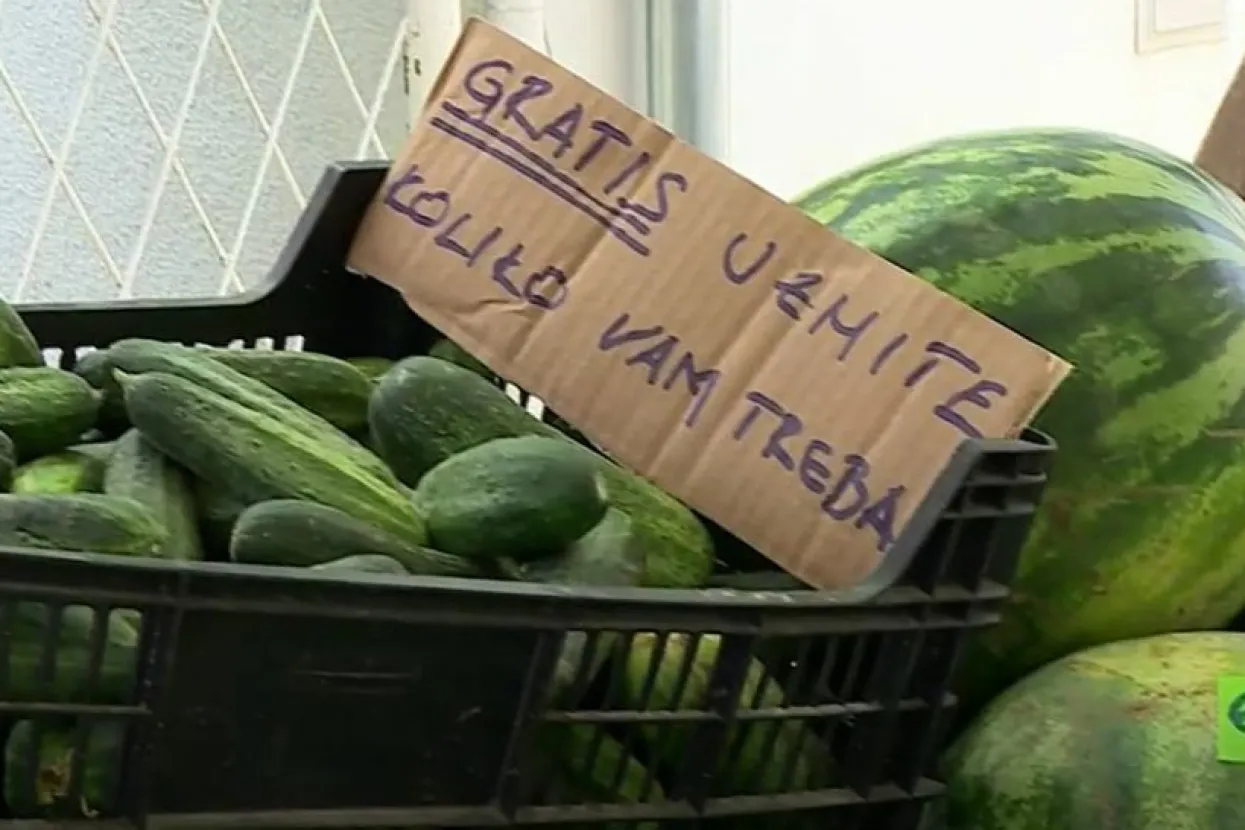 GRATIS UZMITE
KOLIKO VAM TREBA